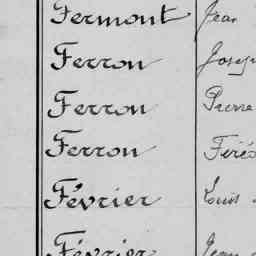 Fermont Jean
Ferron Joseph
Ferron Pierre
Ferron
Février Louis
Février Jean